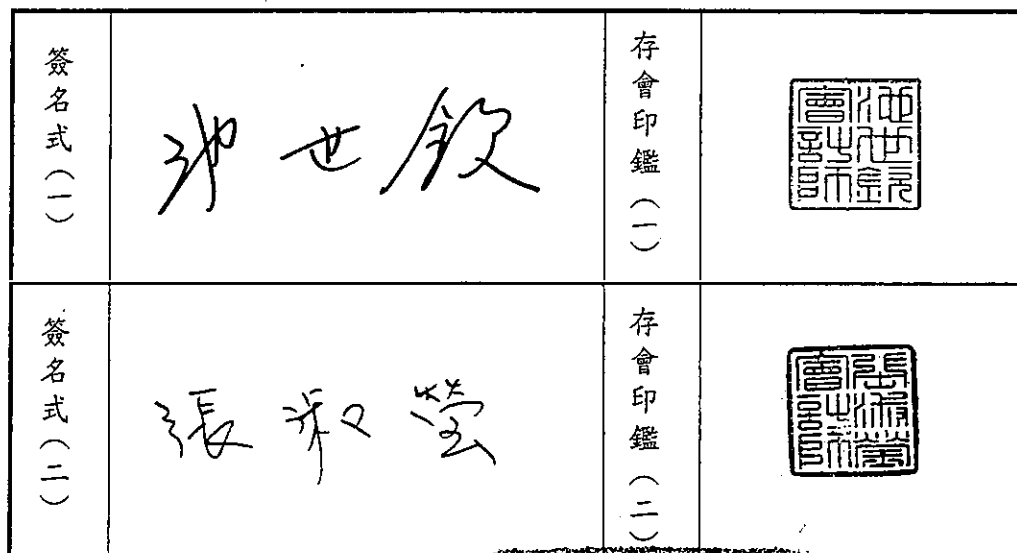 簽名式（一）
池世欽
存會印鑑（一）
池世欽會計師
簽名式（二）
張淑瑩
存會印鑑（二）
張淑瑩會計師